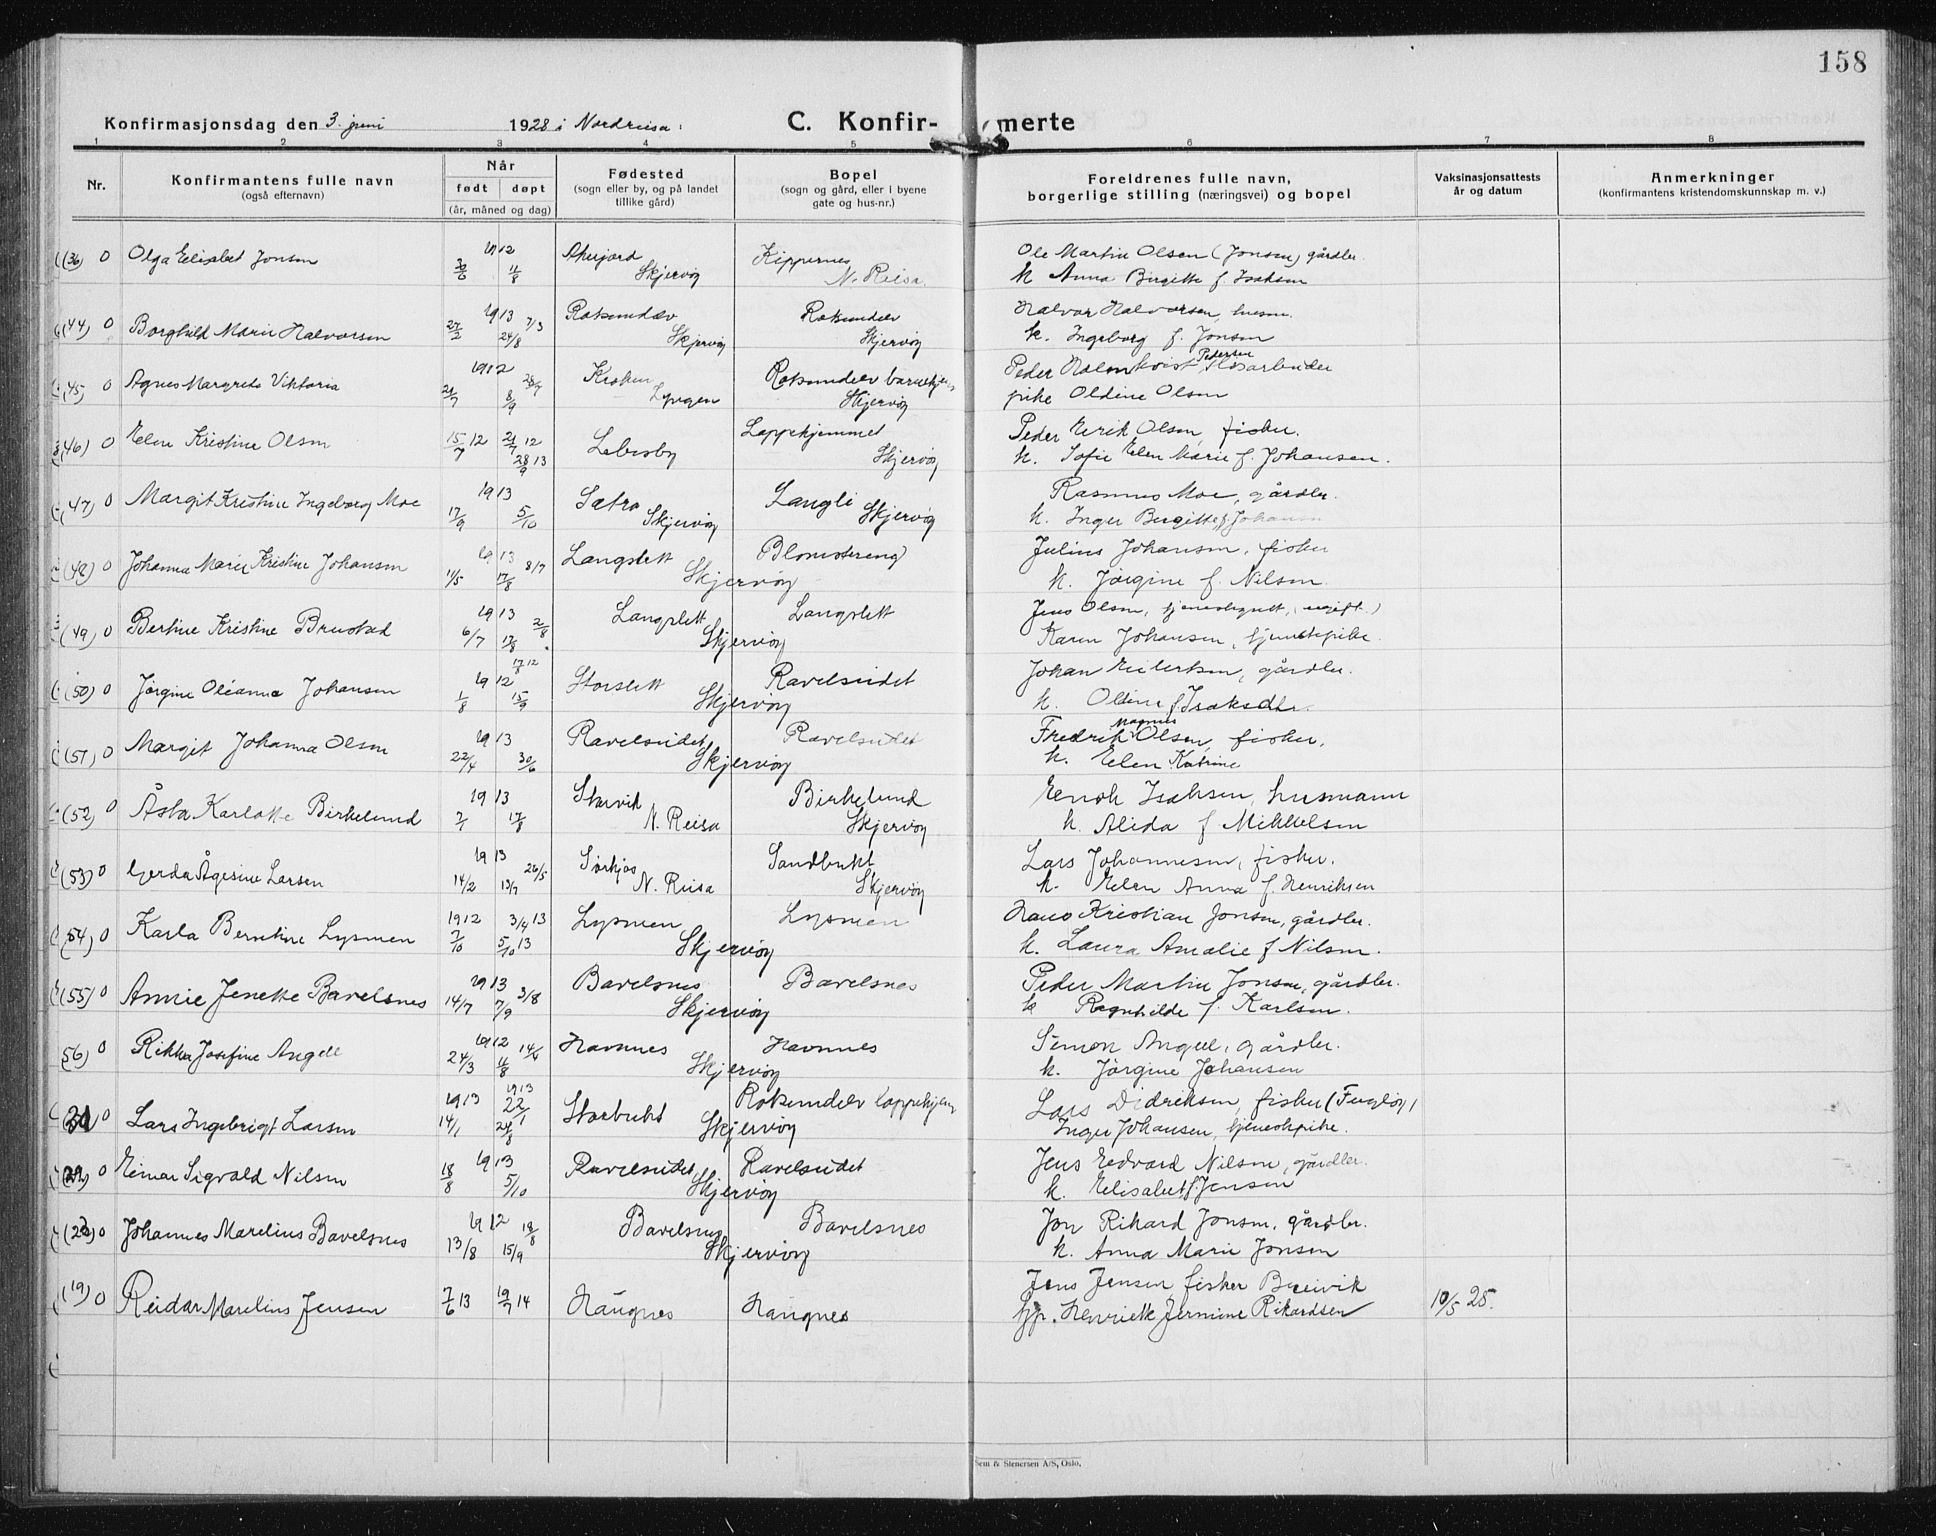 158
Konfirmasjonsdag den 3. juni 1928 i Nordreisa. C. Konfir- merte
1 2 3 4 5 6 7 8
Nr. Konfirmantens fulle navn (også efternavn) Når født døpt (år, måned og dag) Fødested (sogn eller by, og på landet tillike gård) Bopel (sogn og gård, eller i byene gate og hus-nr.) Foreldrenes fulle navn, borgerlige stilling (næringsvei) og bopel Vaksinasjonsattests år og datum Anmerkninger (konfirmantens kristendomskunnskap m. v.)
(36) 0 Olga Elisabet Jonsen 1912 30/6 11/8 Skjervøy Kippernes N. Reisa. Ole Martin Olsen (Jonsen) gårdbr.
k Anna Birgitte f. Isaksen
(44) 0 Borghild Marie Halvorsen 1913 7/3 27/2 24/8 Rotsundelv Skjervøy Rotsundelv Skjervøy Halvor Halvorsen, husm.
k. Ingeborg f. Jonsen
(45) 0 Agnes Margrete Viktoria 1912 28/7 21/7 8/9 Lyngen Rotsundelv barnehjem Skjervøy Peder Holmkvist Pedersen
pike Oldine Olsen
(46) 0 Elen Kristine Olsen 15/7 12 21/7 12 28/9 13 Lebesby Lappehjemmet Skjervøy Peder Erik Olsen, fisker.
k. Sofie Elen Marie f. Johansen.
(47) 0 Margit Kristine Ingeborg Moe 1913 17/9 5/10 Sætra Skjervøy Langli Skjervøy Rasmus Moe, gårdbr.
k. Inger Birgitte f. Johansen
(48) 0 Johanna Marie Kristine Johansen 1913 8/7 11/5 17/8 Langslett Skjervøy Blomstereng Julius Johansen, fisker
k. Jörgine f. Nilsen.
(49) 0 Bertine Kristine Brustad 1913 2/8 6/7 17/8 Langslett Skjervøy Langslett Jens Olsen, tjenestegutt, (ugift)
Karen Johansen, tjenestepike.
(50) 0 Jörgine Oleanna Johansen 17/8 12 1912 1/8 15/9 Storslett Skjervøy Ravelseidet Johan Eilertsen, gårdbr.
k. Oldine f. Isaksdtr.
(51) 0 Margit Johanna Olsen 1913 22/4 30/6 Ravelseidet Skjervøy Ravelseidet Fredrik Magnus Olsen, fisker.
k. Elen Katrine
(52) 0 Åsta Karlotte Birkelund 1913 7/1 17/8 Storvik N. Reisa Birkelund Skjervøy Enok Isaksen, husmann
k. Alida f Mikkelsen
(53) 0 Gerda Ågesine Larsen 1913 26/5 14/2 13/7 Sørkjos N. Reisa Sandbukt Skjervøy Lars Johannesen, fisker.
k. Elen Anna f. Henriksen
(54) 0 Karla Berntine Lysmen 1912 3/4 13 7/10 5/10 13 Lysmen Skjervøy Lysmen Hans Kristian Jonsen, gårdbr.
k. Laura Amalie f Nilsen.
(55) 0 Annie Jenette Bavelsnes 1913 3/8 14/7 7/9 Bavelsnes Skjervøy Bavelsnes Peder Martin Jonsen, gårdbr.
k Ragnhilde f. Karlsen.
(56) 0 Rikka Josefine Angell 1912 14/4 24/3 11/8 Havnnes Skjervøy Havnnes Simon Angell, gårdbr.
k. Jörgine Johansen
0 Lars Ingebrigt Larsen 1913 1913 22/1 14/1 24/8 Storbukt Skjervøy Rotsundelv lappehjem Lars Didriksen, fisker (Fugløy)
Inger Johansen, tjenestepike.
0 Einar Sigvald Nilsen 1913 18/8 5/10 Ravelseidet Skjervøy Ravelseidet Jens Edvard Nilsen, gårdbr.
k. Elisabet f. Jensen
0 Johannes Marelius Bavelsnes 1912 18/8 13/8 15/9 Bavelsnes Skjervøy Bavelsnes Jon Rikard Jonsen, gårdbr.
k. Anna Marie Jonsen
(19) 0 Reidar Marelius Jensen 7/6 13 19/7 14 Haugnes Haugnes Jens Jensen fisker Breivik
tjp. Henriette Jermine Rikardsen 10/5 25.
Sem & Stenersen A/S, Oslo.